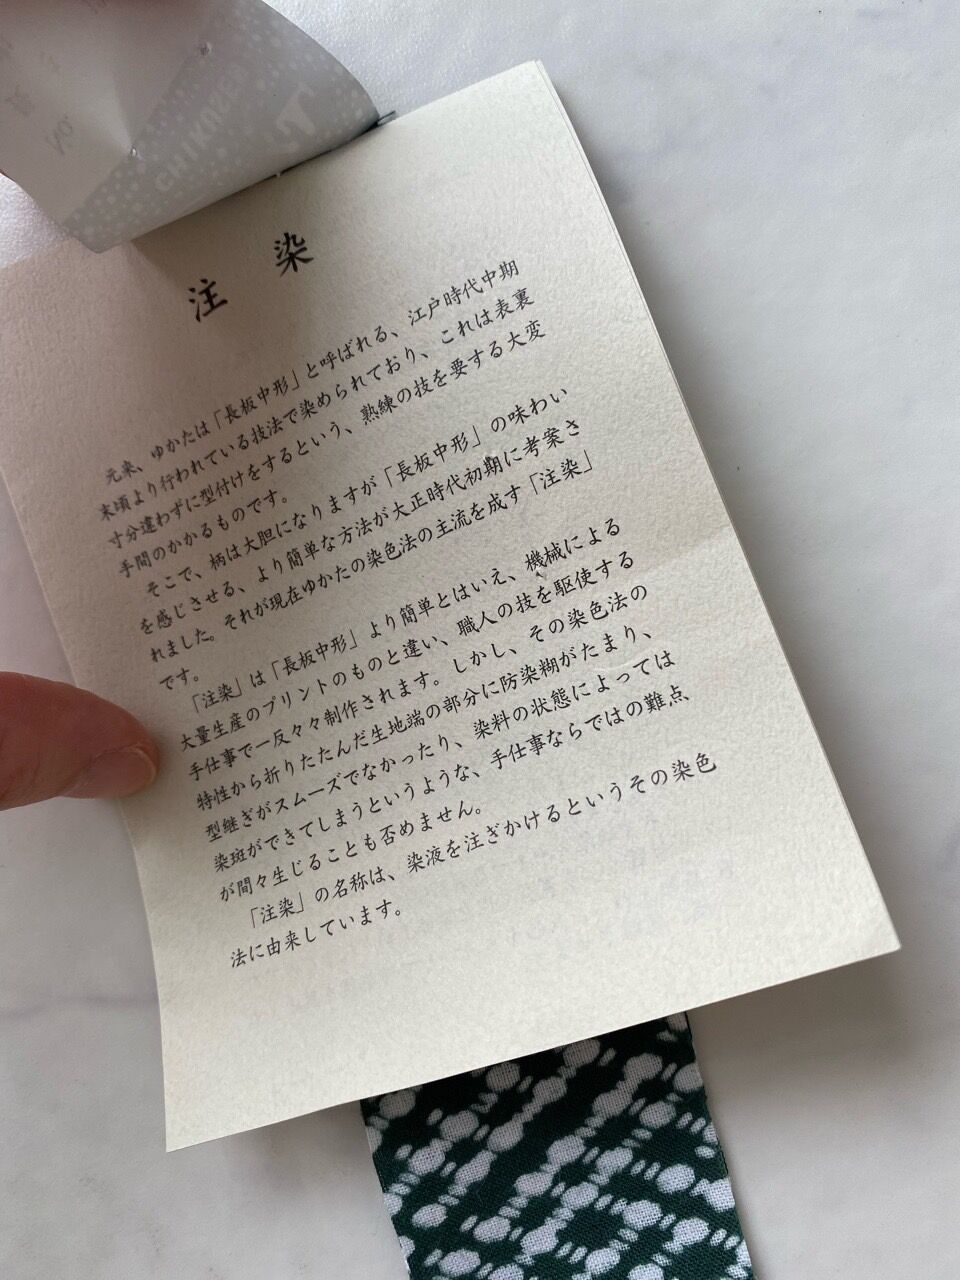 CHIKUSEN
注 染
元来、ゆかたは「長板中形」と呼ばれる、江戸時代中期
末頃より行われている技法で染められており、これは表裏
寸分違わずに型付けをするという、熟練の技を要する大変
手間のかかるものです。
そこで、柄は大胆になりますが「長板中形」の味わい
を感じさせる、より簡単な方法が大正時代初期に考案さ
れました。それが現在ゆかたの染色法の主流を成す「注染」
です。
「注染」は「長板中形」より簡単とはいえ、機械による
大量生産のプリントのものと違い、職人の技を駆使する
手仕事で一反々々制作されます。しかし、その染色法の
特性から折りたたんだ生地端の部分に防染糊がたまり、
型継ぎがスムーズでなかったり、染料の状態によっては
染斑ができてしまうというような、手仕事ならではの難点
が間々生じることも否めません。
「注染」の名称は、染液を注ぎかけるというその染色
法に由来しています。